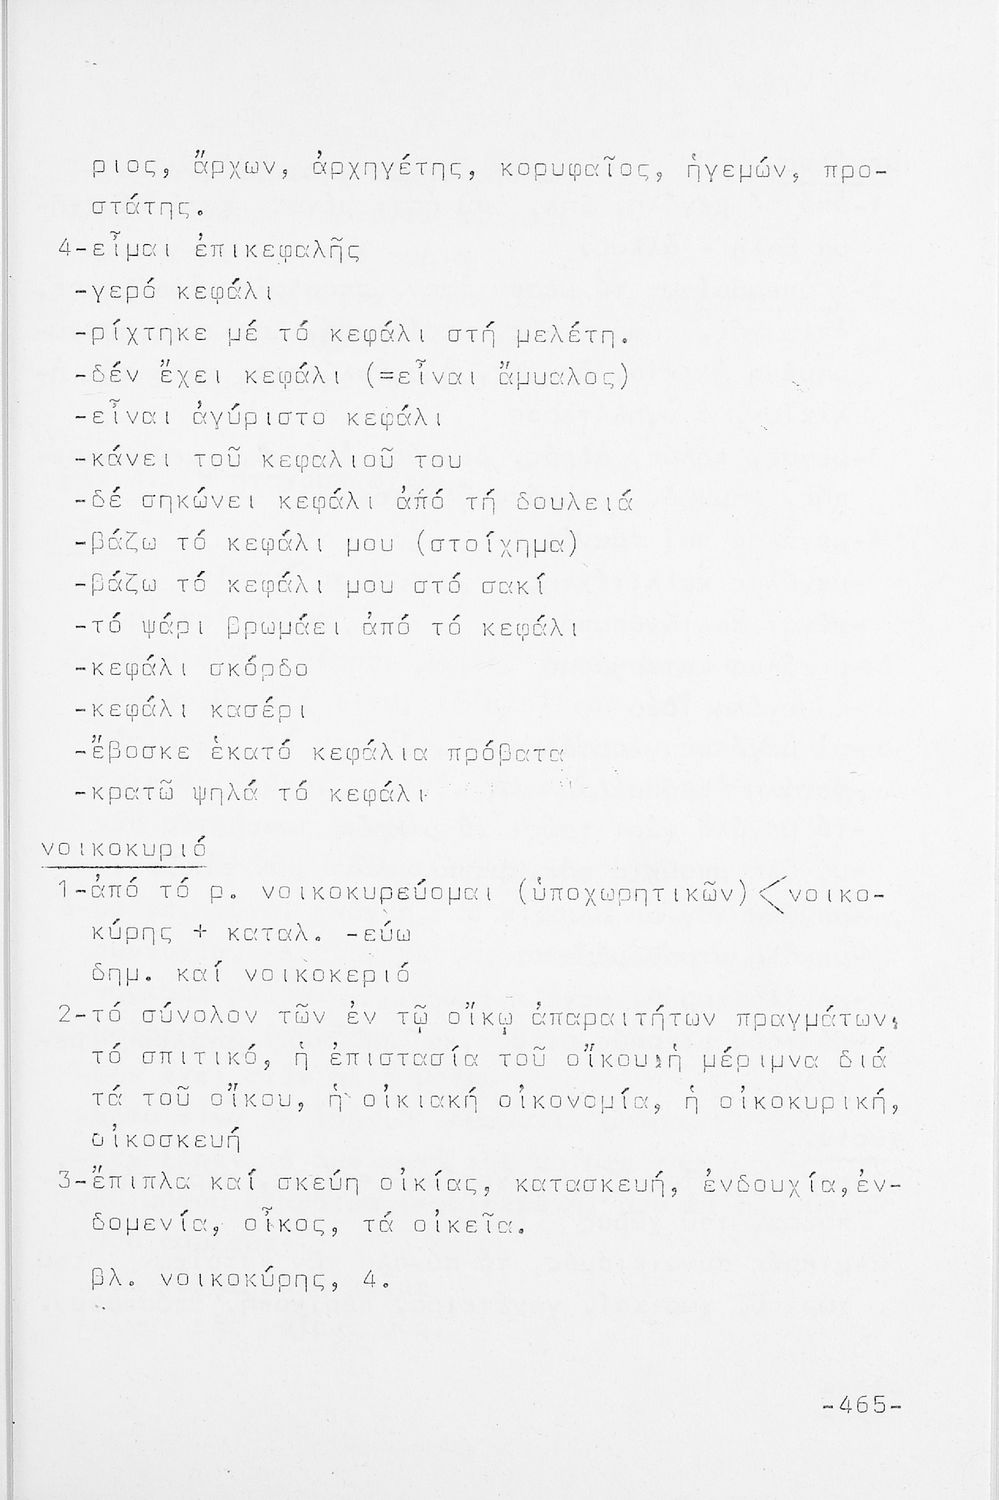 ριος, ἄρχων, ἀρχηγέτης, κορυφαῖος, ἡγεμών, προ-
στάτης.
4-εἶμαι ἐπικεφαλῆς
-γερό κεφάλι
-ρίχτηκε μέ τό κεφάλι στή μελέτη.
-δέν ἔχει κεφάλι (=εἶναι ἄμυαλος)
-εἶναι ἀγύριστο κεφάλι
-κάνει τοῦ κεφαλιοῦ του
-δέ σηκώνει κεφάλι ἀπό τή δουλειά
-βάζω τό κεφάλι μου (στοίχημα)
-βάζω τό κεφάλι μου στό σακί
-τό ψάρι βρωμάει ἀπό τό κεφάλι
-κεφάλι σκόρδο
-κεφάλι κασέρι
-ἔβοσκε ἑκατό κεφάλια πρόβατα
-κρατῶ ψηλά τό κεφάλι
νοικοκυριό
1-ἀπό τό ρ. νοικοκυρεύομαι (ὑποχωρητικῶν) <νοικο-
κύρης + καταλ. -εύω
δημ. καί νοικοκεριό
2-τό σύνολον τῶν ἐν τῷ οἴκῳ ἀπαραιτήτων πραγμάτων,
τό σπιτικό, ἡ ἐπιστασία τοῦ οἴκου,ἡ μέριμνα διά
τά τοῦ οἴκου, ἡ οἰκιακή οἰκονομία, ἡ οἰκοκυρική,
οἰκοσκευή
3-ἔπιπλα καί σκεύη οἰκίας, κατασκευή, ἐνδουχία,ἐν-
δομενία, οἶκος, τά οἰκεῖα.
βλ. νοικοκύρης, 4.
-465-